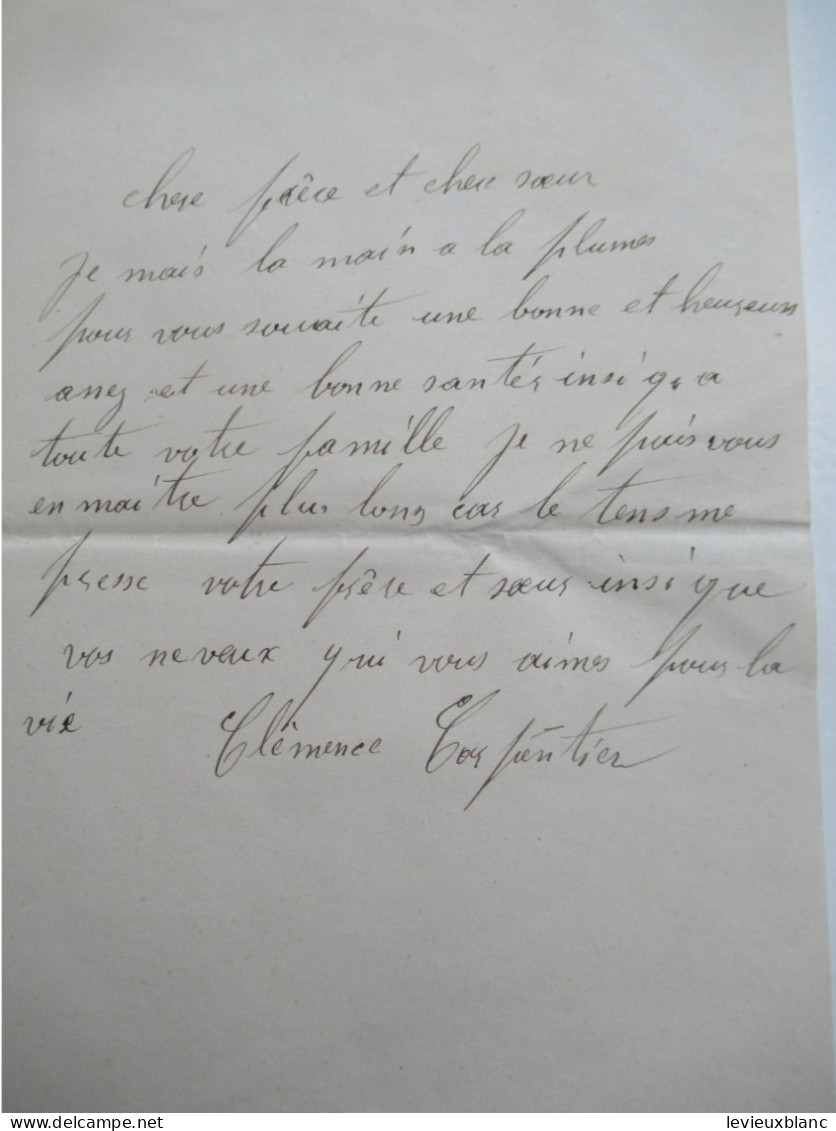 chere frêre et chere sœur
Je mais la main a la plumes
pour vous souaite une bonne et heureuse
anez et une bonne santér insi q'a
toute votre famille Je ne puis vous
en maitre plus long car le tens me
presse votre frêre et sœur insi que
vos neveux qui vous aimes pour la
vie Clêmence Carpentier
levieuxblanc